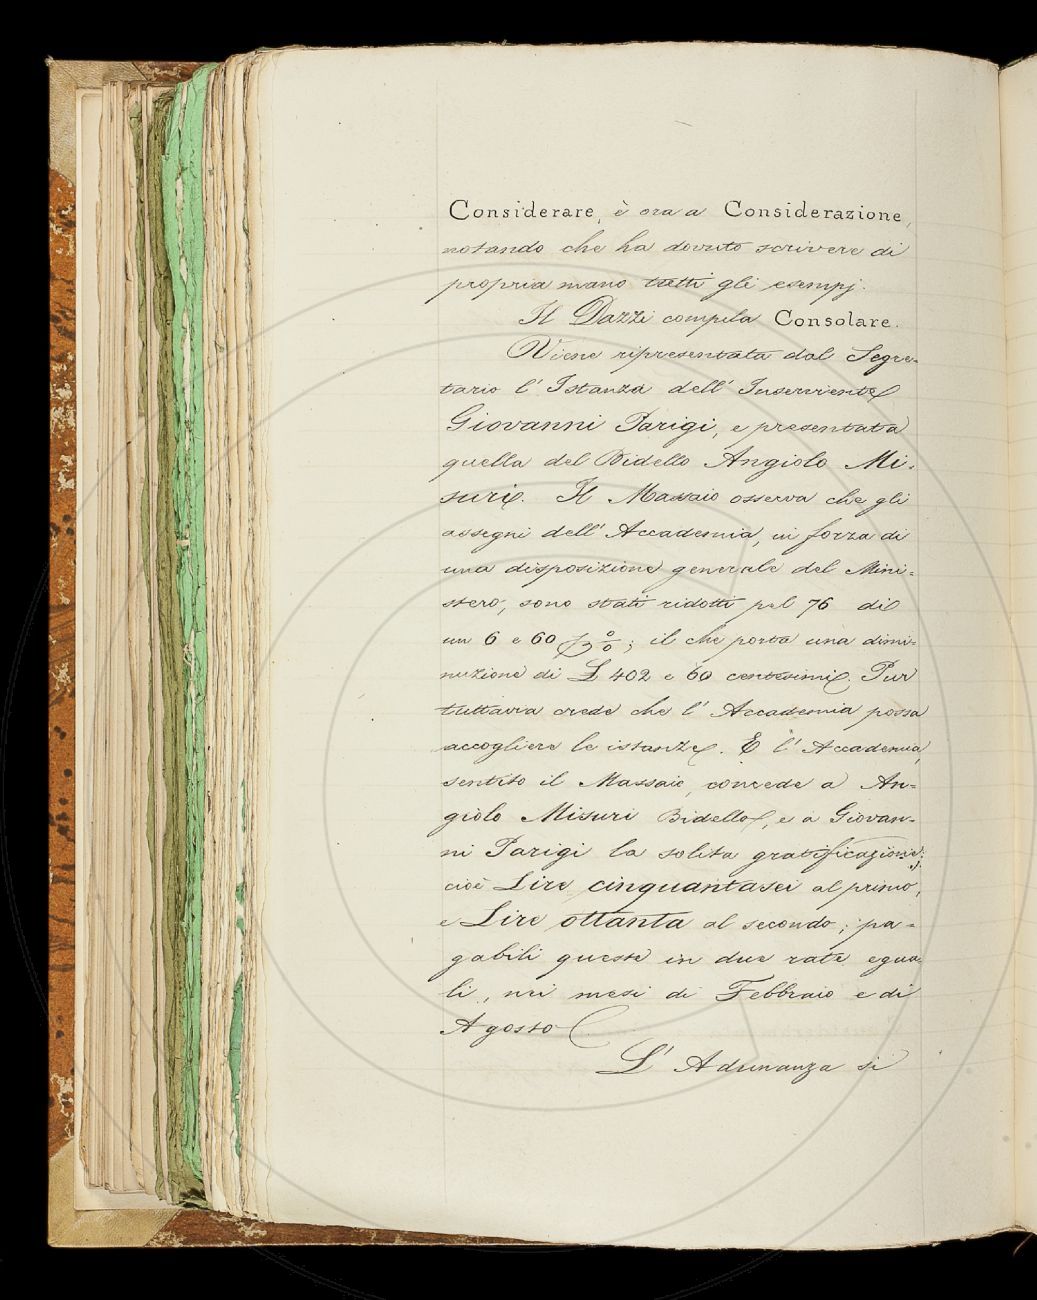 Considerare, è ora a Considerazione,
notando che ha dovuto scrivere di
propria mano tutti gli esempj.
Il Dazzi compila Consolare.
Viene ripresentata dal Segre-
tario l' Istanza dell' Inserviente
Giovanni Parigi, e presentata
quella del Bidello Angiolo Mi-
suri. Il Massaio osserva che gli
assegni dell' Accademia, in forza di
una disposizione generale del Mini-
stero, sono stati ridotti pel 76 di
un 6 e 60 p %; il che porta una dimi-
nuzione di L 402 e 60 centesimi. Pur
tuttavia crede che l' Accademia possa
accogliere le istanze. E l' Accademia,
sentito il Massaio, concede a An-
giolo Misuri Bidello, e a Giovan-
ni Parigi la solita gratificazione;
cioè Lire cinquantasei al primo,
e Lire ottanta al secondo; pa-
gabili queste in due rate egua-
li, nei mesi di Febbraio e di
Agosto.
L' Adunanza si